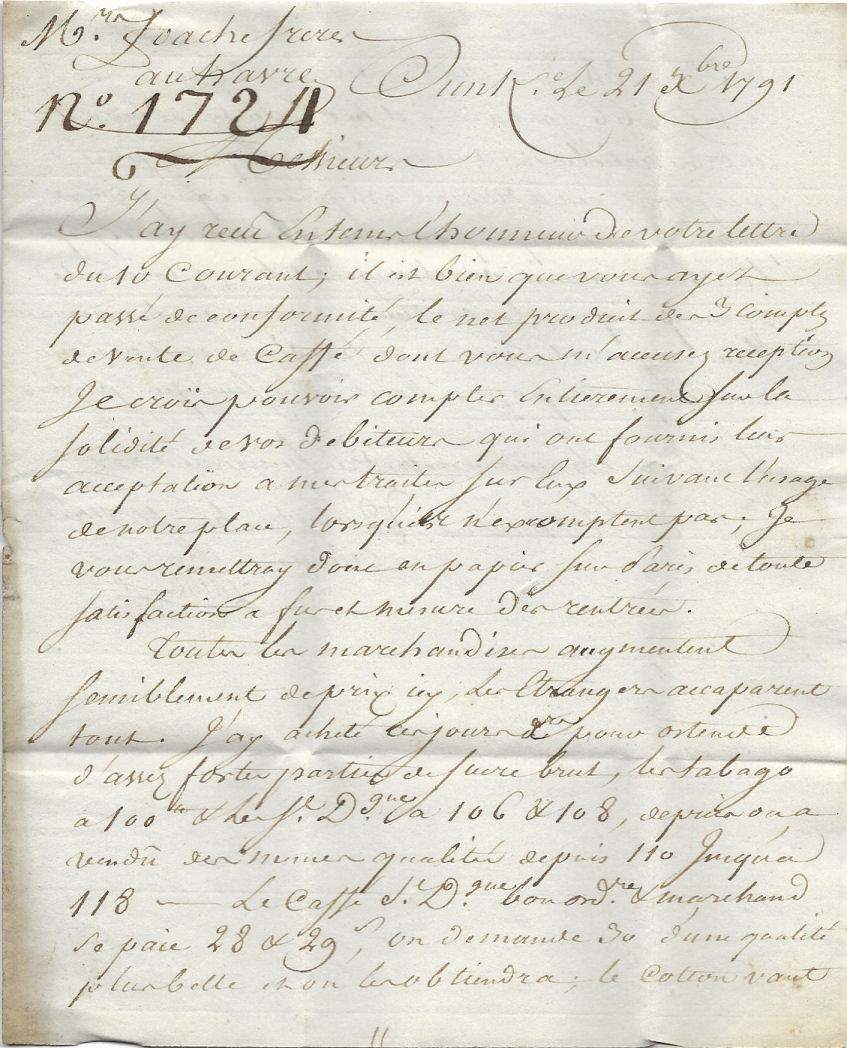 M.rs Foache freres
au havre
N.o 1724
Dunk.e Le 21 Xbre 1791
Messieurs
J'ay recû En tems l'honneur de votre lettre
du 10 Courant; il est bien que vous ayez
passé de conformité, le net produit des 3 comptes
de vente de Caffé dont vous m'accusez reception
Je croix pouvoir compter Entierement sur la
solidité de vos debiteurs qui ont fournis leur
acceptation a mes traites sur Eux Suivant l'usage
de notre place, lorsqu'ils n'excomptent pas; Je
vous remettray donc en papier sur Paris de toute
satisfaction a fur et mesure des rentrées.
Toutes les marchandises augmentent
sensiblement de prix icy, Les Etrangers accaparent
tout. J'ay acheté ces jours d.ers pour ostende
d'assez fortes parties de sucre brut, les tabago
a 100 & Les S.t D.gue a 106 & 108, depuis on a
vendû des memes qualités depuis 110 Jusqu'a
118 — Le Caffé S.t D.gue bon ord.re & marchand
se paie 28 & 29 s, on demande 30 d'une qualité
plus belle et on les obtiendra; le Cotton vaut